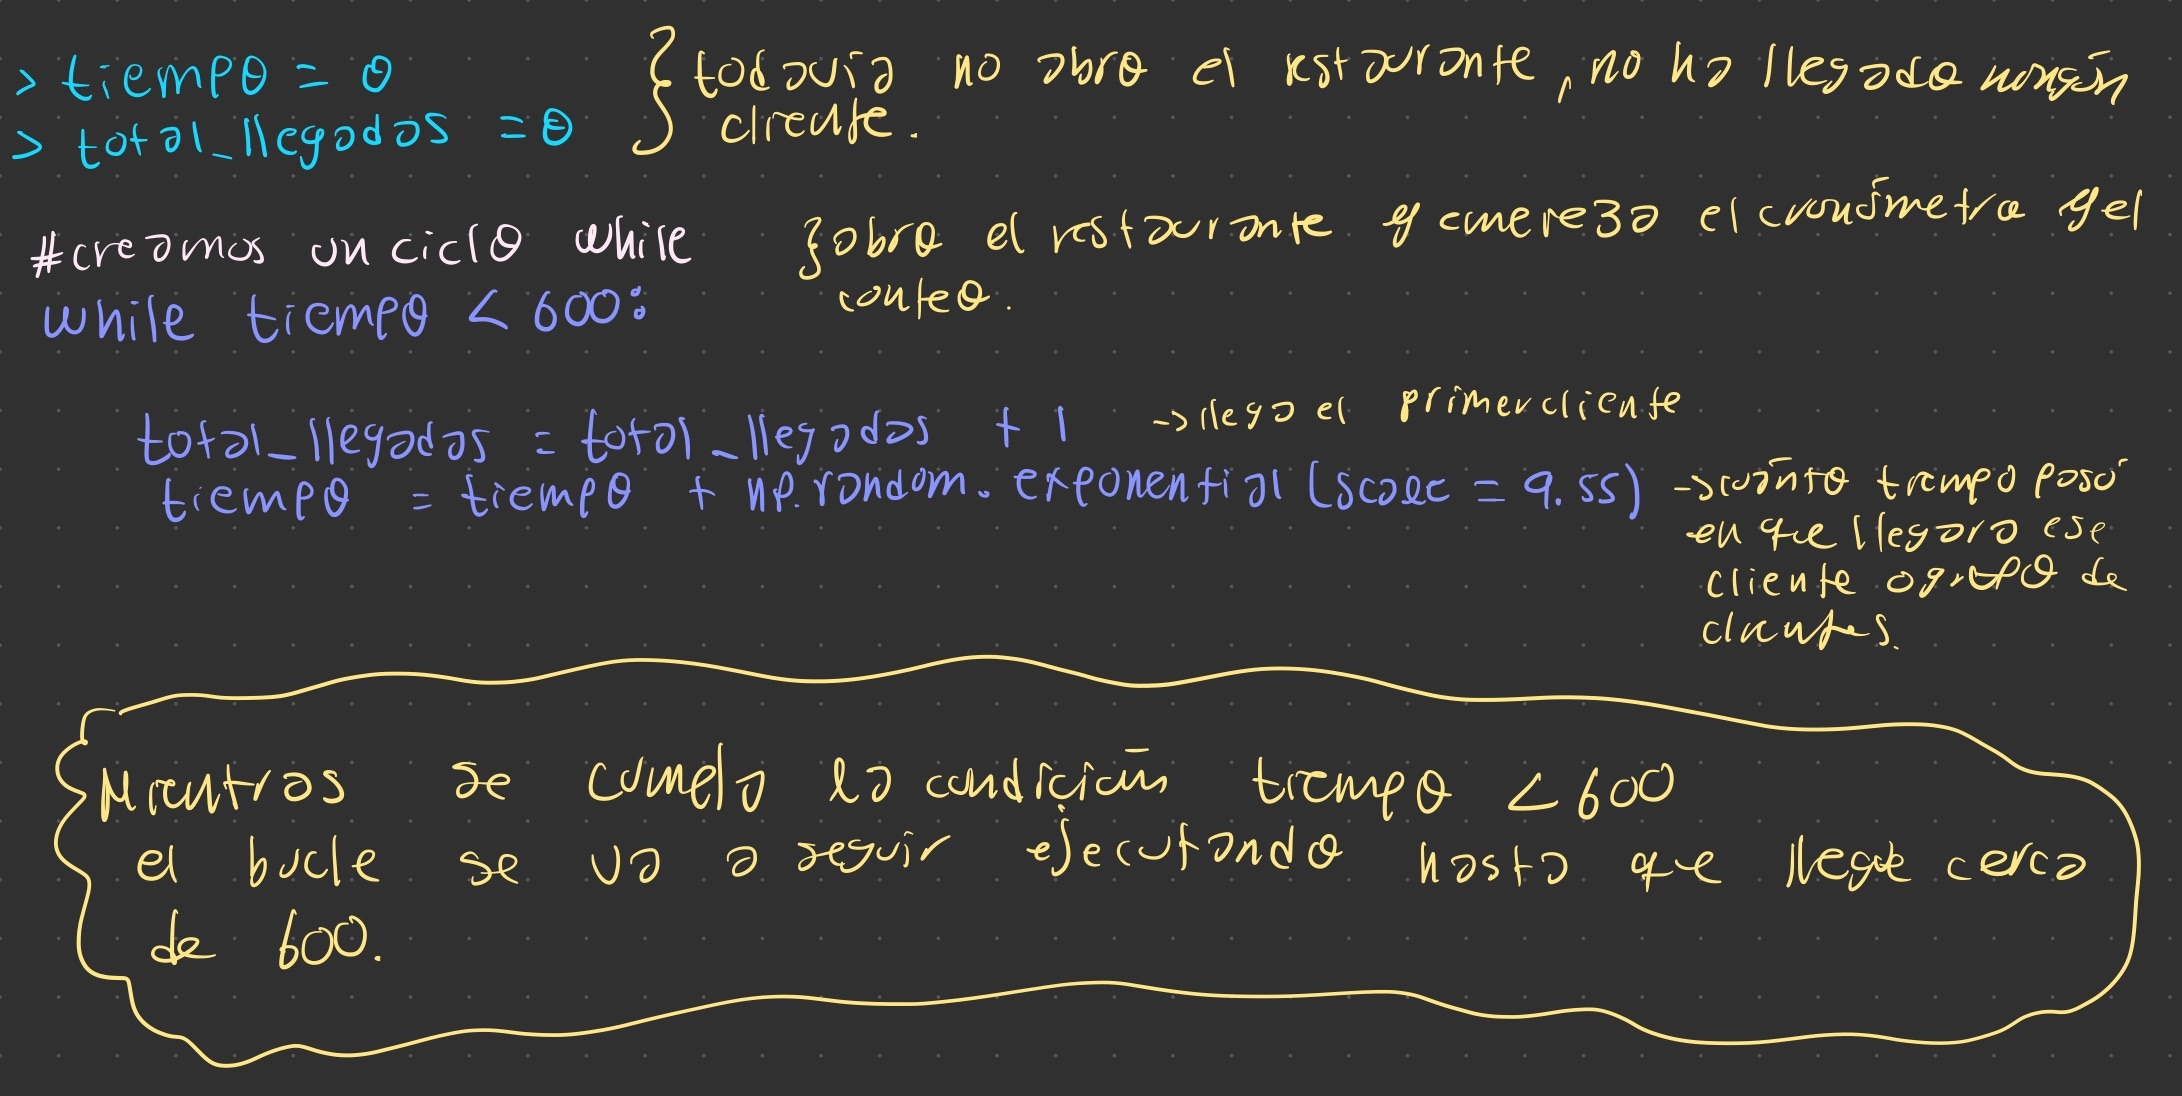 > tiempo = 0 } todavía no abro el restaurante, no ha llegado ningún
> total_llegados = 0 cliente.
#creamos un ciclo while } abro el restaurante y empieza el cronómetro y el
while tiempo < 600: conteo.
total_llegados = total_llegados + 1 → llega el primer cliente
tiempo = tiempo + np.random.exponential(scale = 9.55) → cuánto tiempo pasó
en que llegara ese
cliente o grupo de
clientes.
Mientras se cumpla la condición tiempo < 600
el bucle se va a seguir ejecutando hasta que llegue cerca
de 600.